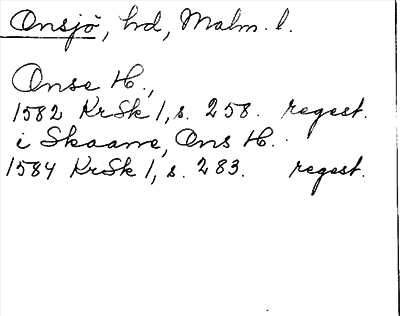 Onsjö, hd, Malm. l.
Onse H.,
1582 KrSk 1, s. 258. regest.
i Skaane, Ons H.
1584 KrSk 1, s. 283. regest.